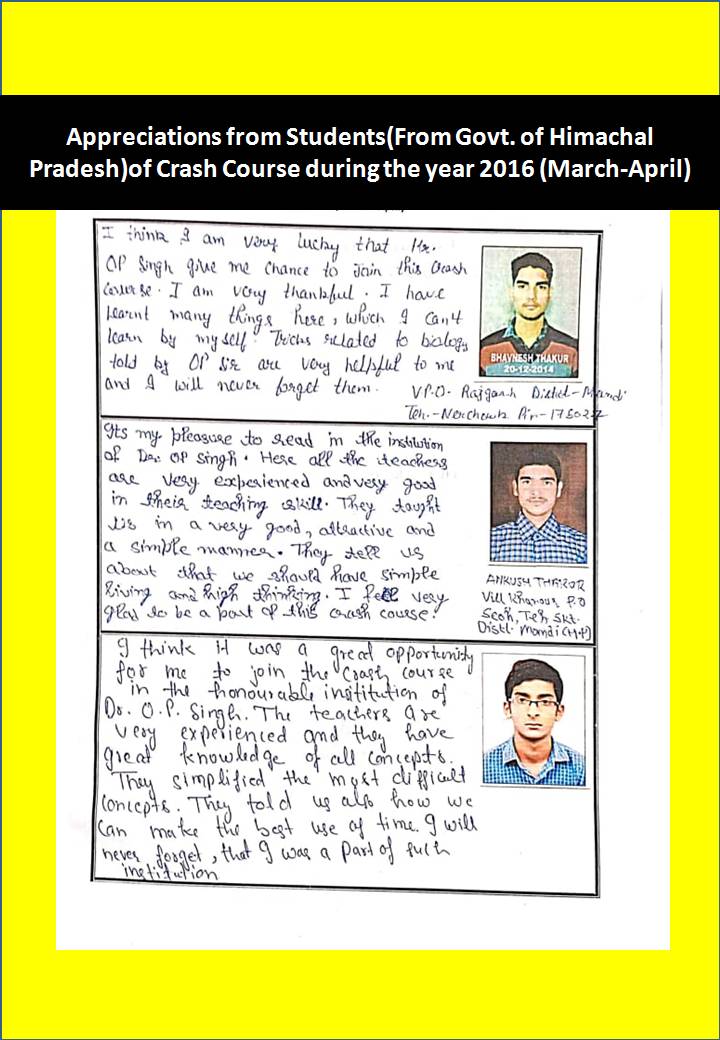 Appreciations from Students(From Govt. of Himachal
Pradesh)of Crash Course during the year 2016 (March-April)
I think I am very lucky that Mr.
OP Singh give me chance to Join this Crash
Course. I am very thankful. I have
learnt many things here, which I can't
learn by myself. Tricks related to biology
told by OP Sir are very helpful to me
and I will never forget them.
BHAVNESH THAKUR
20-12-2014
V.P.O. Rajgarh Distict-Mandi
Teh.-Nerchowk Pin-175027
Its my pleasure to read in the institution
of Dr. OP Singh. Here all the teachers
are very experienced and very good
in their teaching skill. They taught
us in a very good, attractive and
a simple manner. They tell us
about that we should have simple
living and high thinking. I feel very
glad to be a part of this crash course.
ANKUSH THAKUR
Vill Khanour P.O
Scoh, Teh Skt.
Distt. Mandi (H.P)
I think it was a great opportunity
for me to join the Crash course
in the honourable institution of
Dr. O.P. Singh. The teachers are
very experienced and they have
great knowledge of all concepts.
They simplified the most difficult
concepts. They told us also how we
can make the best use of time. I will
never forget, that I was a part of such
institution